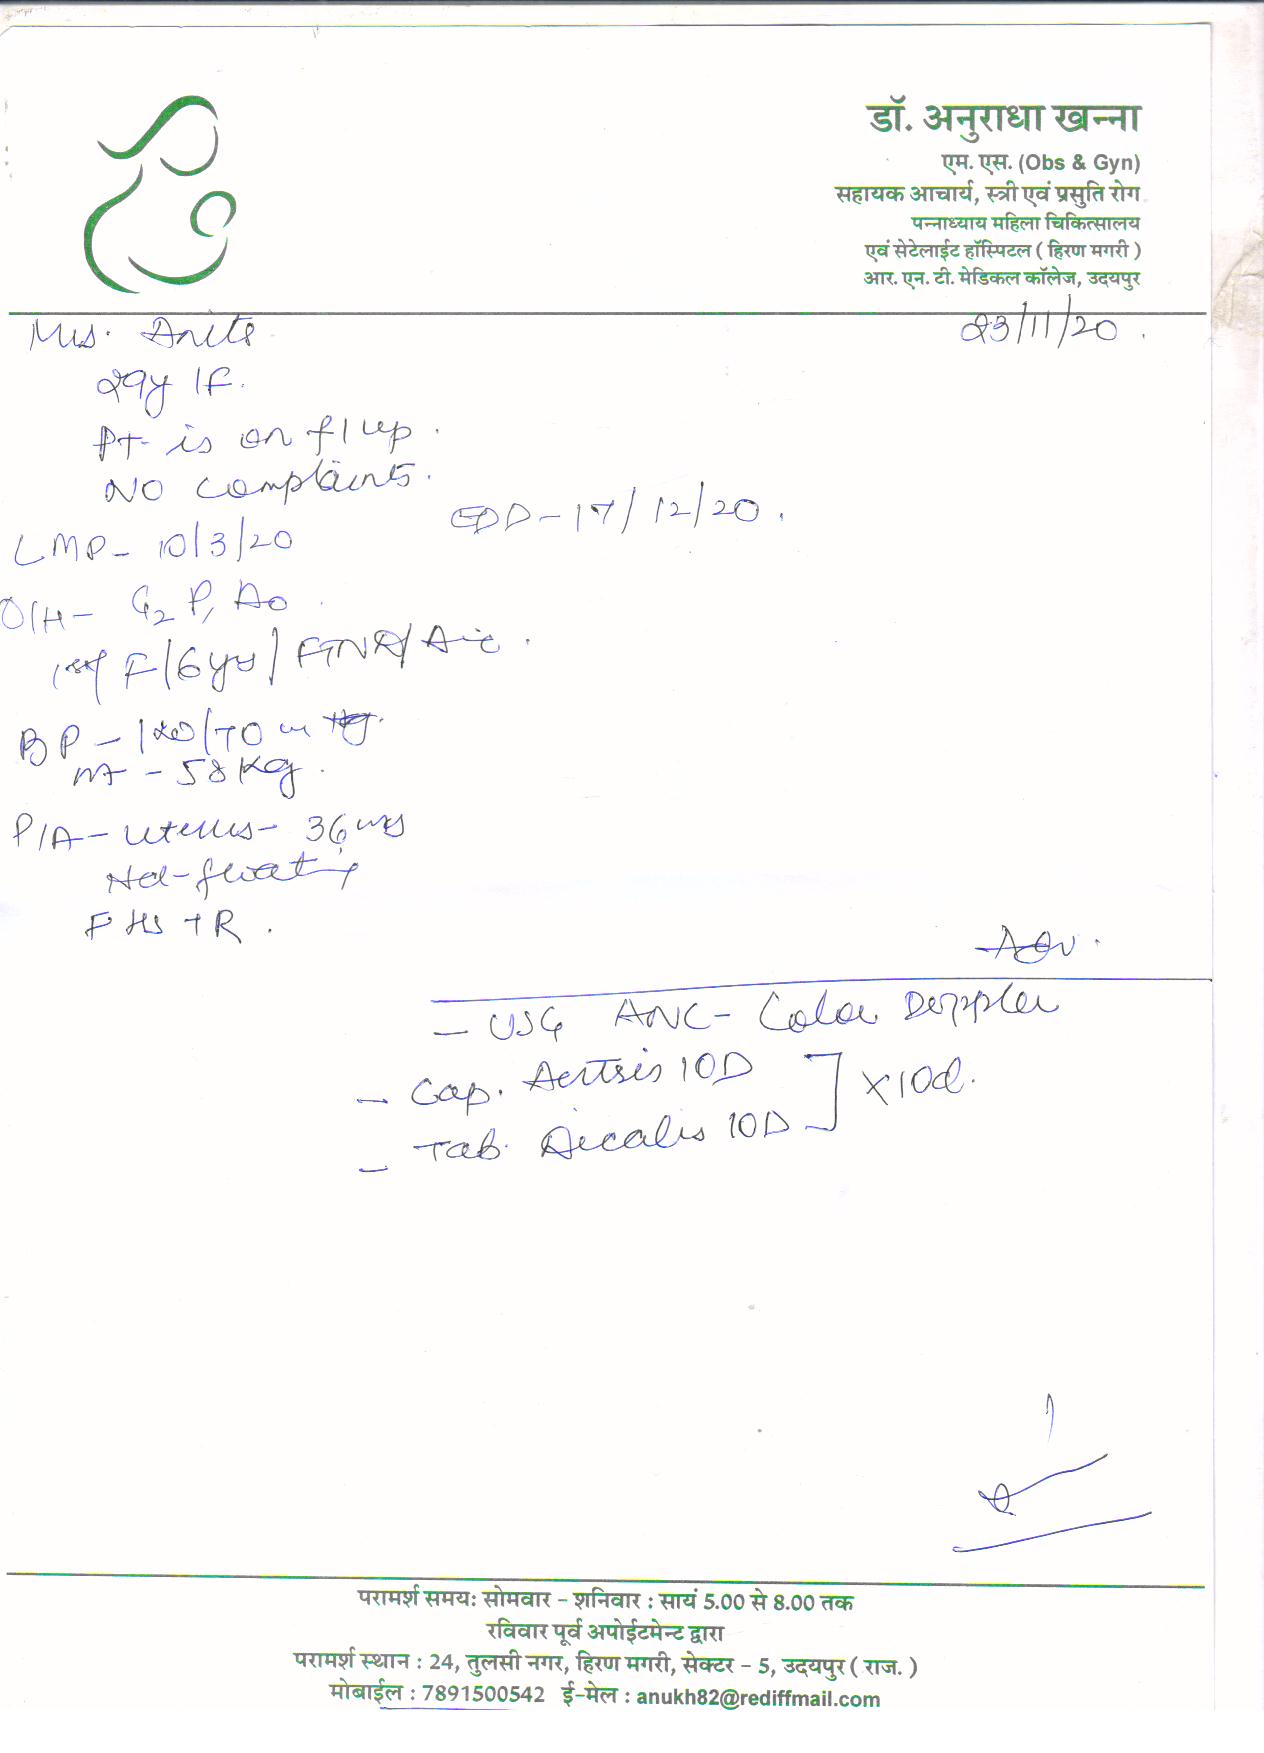 डॉ. अनुराधा खन्ना
एम. एस. (Obs & Gyn)
सहायक आचार्य, स्त्री एवं प्रसुति रोग
पन्नाध्याय महिला चिकित्सालय
एवं सेटेलाईट हॉस्पिटल ( हिरण मगरी )
आर. एन. टी. मेडिकल कॉलेज, उदयपुर
23/11/20.
Mrs. Anita
29y / F.
Pt is on f/up.
NO complaints.
LMP- 10/3/20 EDD-17/12/20.
O/H- G2 P1 A0
1st F/6yrs/FTND/
BP - 120/70 mm Hg.
wt - 58 kg.
P/A- uterus- 36 wks
Hd-floating
FHS + R.
Adv.
- USG ANC- Color Doppler
- Cap. 10D
- Tab. 10D ] x 10d.
परामर्श समय: सोमवार - शनिवार : सायं 5.00 से 8.00 तक
रविवार पूर्व अपोईटमेन्ट द्वारा
परामर्श स्थान : 24, तुलसी नगर, हिरण मगरी, सेक्टर - 5, उदयपुर ( राज. )
मोबाईल : 7891500542 ई-मेल : anukh82@rediffmail.com